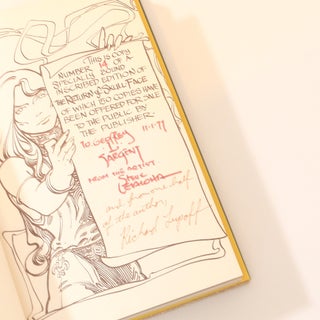 THIS IS COPY
NUMBER 14 OF A
SPECIALLY BOUND
INSCRIBED EDITION OF
THE RETURN OF SKULL-FACE
OF WHICH 150 COPIES HAVE
BEEN OFFERED FOR SALE
TO THE PUBLIC BY
THE PUBLISHER.
TO GEOFFREY 11-1-77
SARGENT
FROM THE ARTIST
STEVE
LEIALOHA
and from one half
of the author,
Richard Lupoff